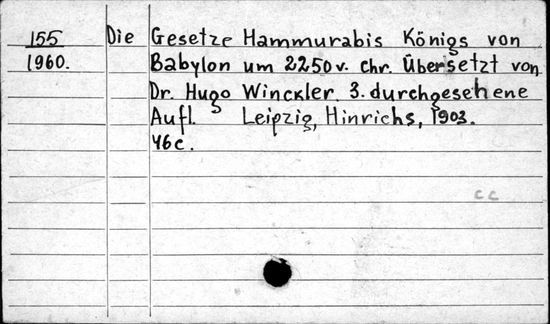 155 Die Gesetze Hammurabis Königs von
1960. Babylon um 2250 v. chr. Übersetzt von
Dr. Hugo Winckler. 3. durchgesehene
Aufl. Leipzig, Hinrichs, 1903.
46 c.
c c